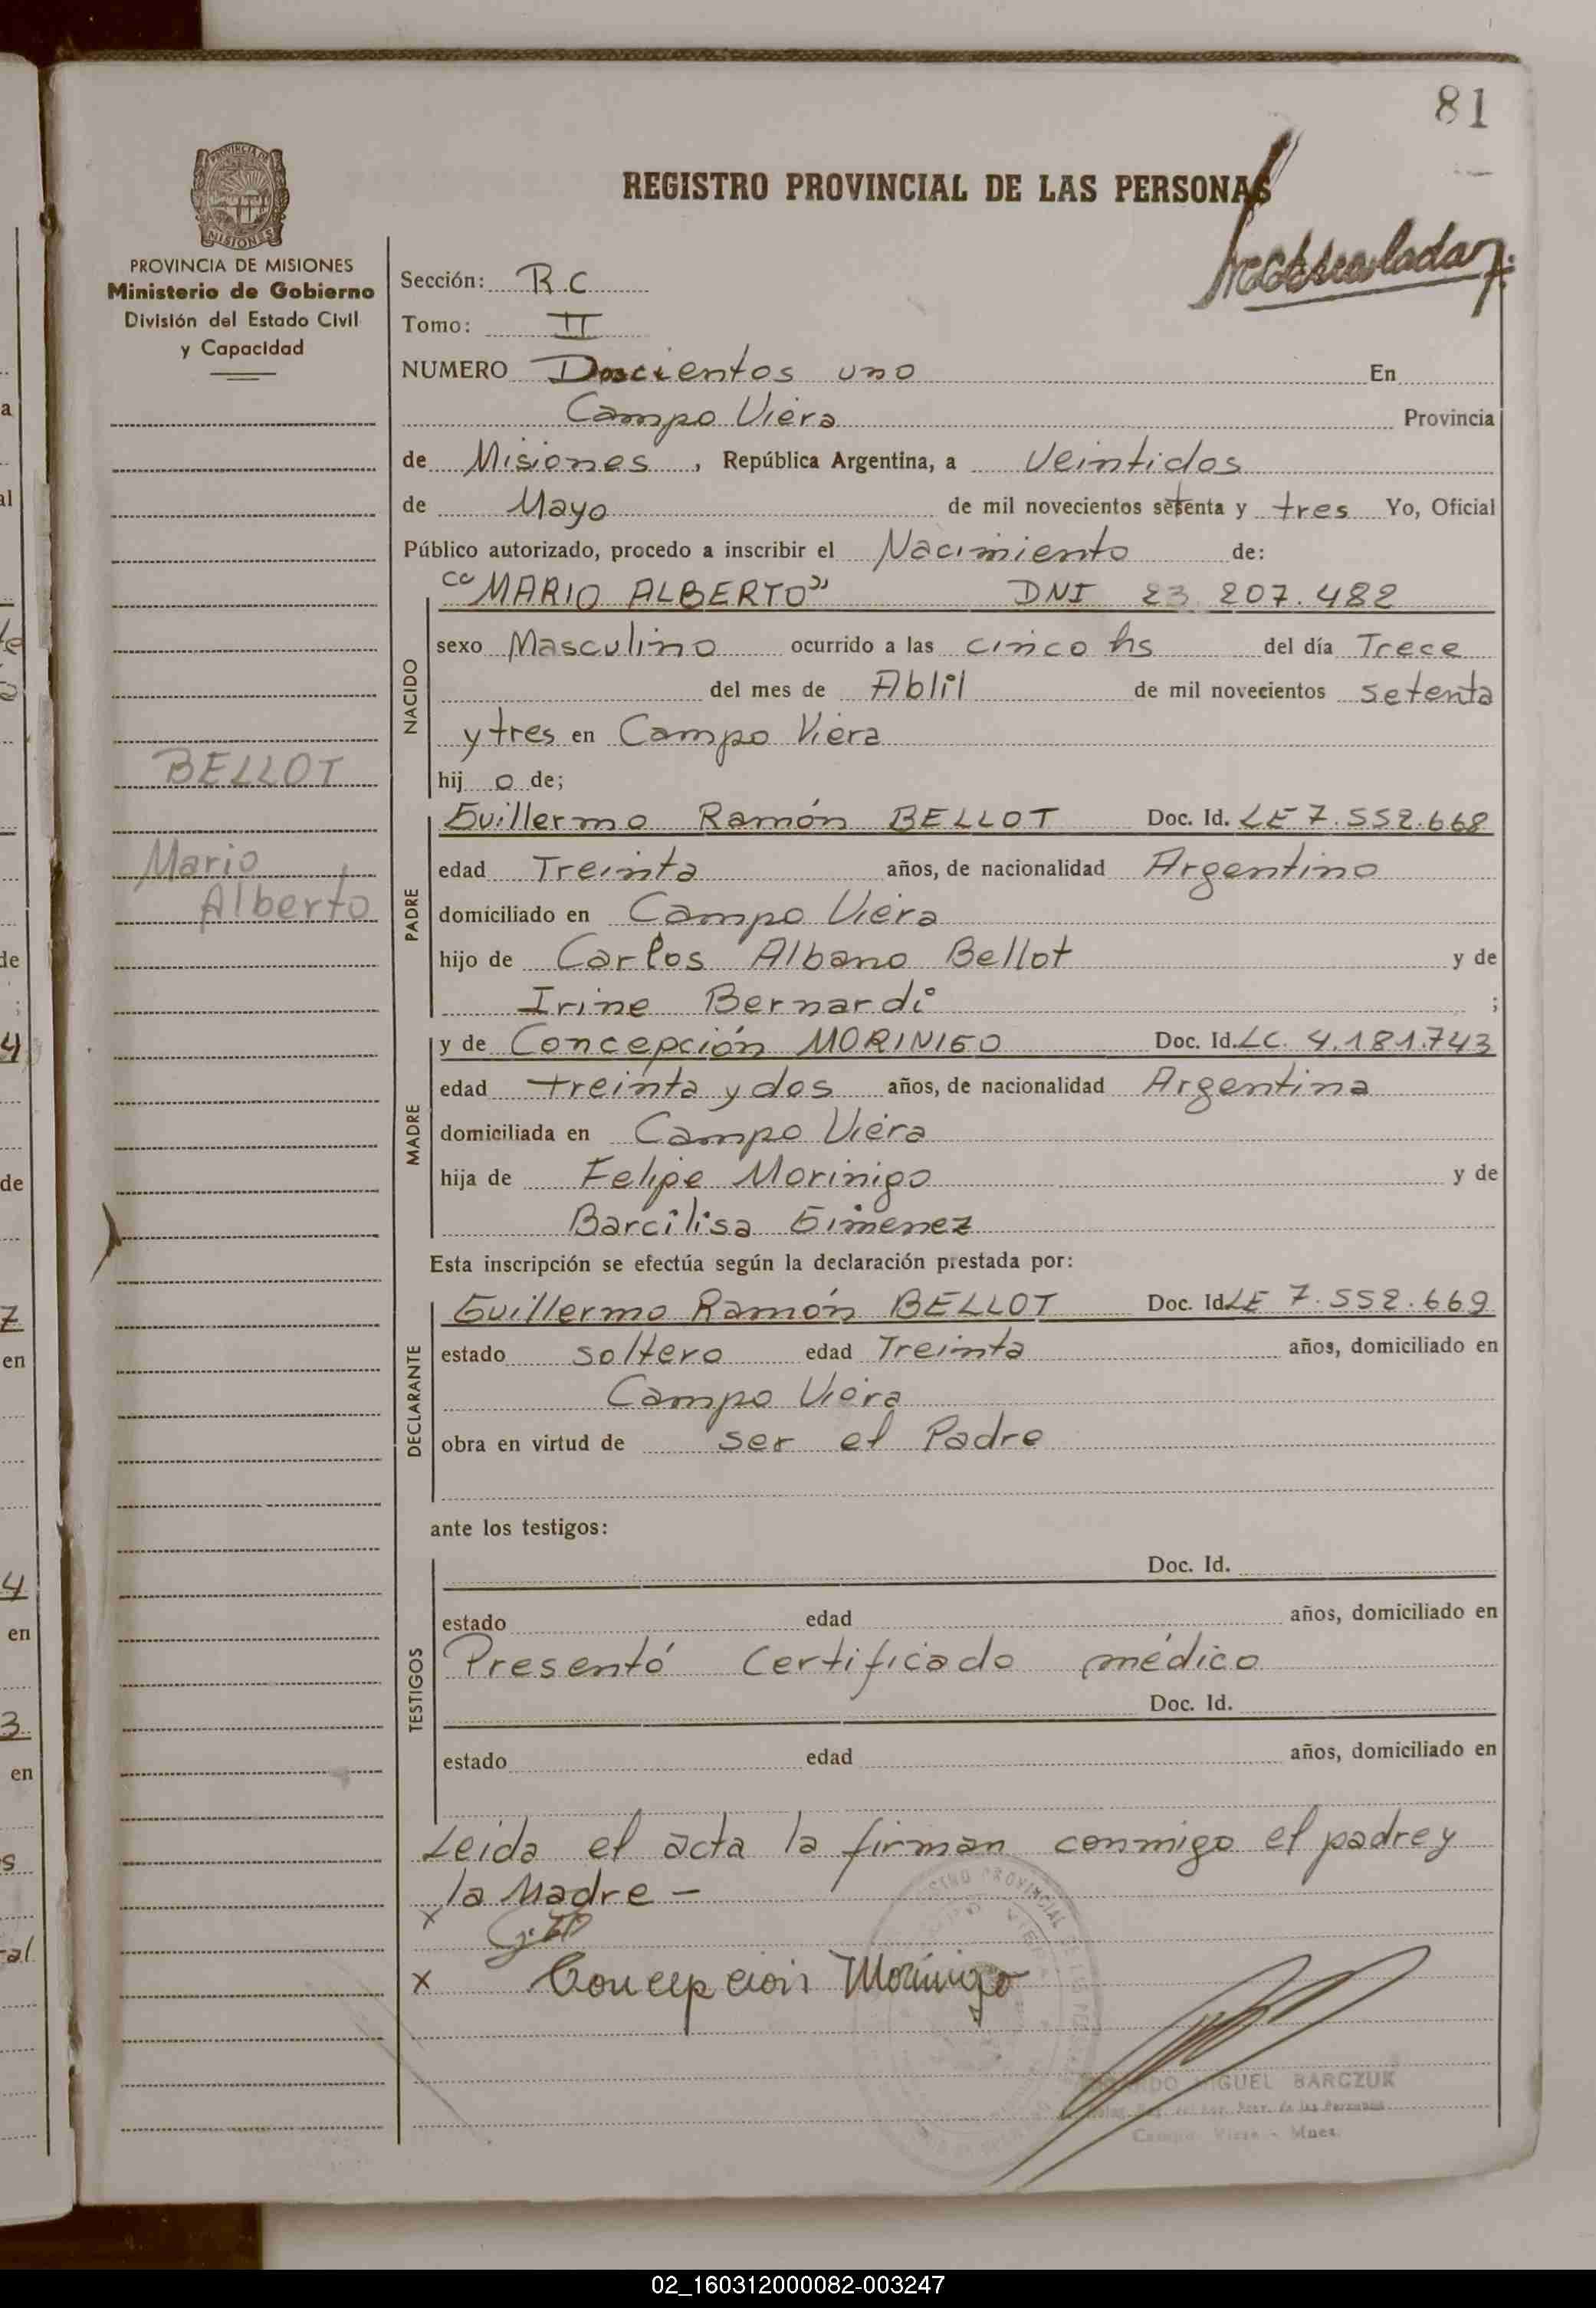 81
REGISTRO PROVINCIAL DE LAS PERSONAS
PROVINCIA DE MISIONES
Ministerio de Gobierno
División del Estado Civil
y Capacidad
Sección: R.C
Tomo: II
NUMERO Doscientos uno En
Campo Viera Provincia
de Misiones, República Argentina, a Veintidos
de Mayo de mil novecientos setenta y tres Yo, Oficial
Público autorizado, procedo a inscribir el Nacimiento de:
NACIDO
"MARIO ALBERTO" DNI 23.207.482
sexo Masculino ocurrido a las cinco hs del día Trece
del mes de Ablil de mil novecientos setenta
y tres en Campo Viera
hij o de;
BELLOT
Mario
Alberto
PADRE
Guillermo Ramón BELLOT Doc. Id. LE 7.552.668
edad Treinta años, de nacionalidad Argentino
domiciliado en Campo Viera
hijo de Carlos Albano Bellot y de
Irine Bernardi ;
MADRE
y de Concepción MORINIGO Doc. Id. LC. 4.181.743
edad treinta y dos años, de nacionalidad Argentina
domiciliada en Campo Viera
hija de Felipe Morinigo y de
Barcilisa Gimenez
Esta inscripción se efectúa según la declaración prestada por:
DECLARANTE
Guillermo Ramón BELLOT Doc. Id. LE 7.552.669
estado soltero edad Treinta años, domiciliado en
Campo Viera
obra en virtud de ser el Padre
ante los testigos:
TESTIGOS
Doc. Id.
estado edad años, domiciliado en
Presentó Certificado médico
Doc. Id.
estado edad años, domiciliado en
Leida el acta la firman conmigo el padre y
la Madre -
x
x Concepción Morinigo
MIGUEL BARCZUK
Campo Viera - Mnes
02_160312000082-003247